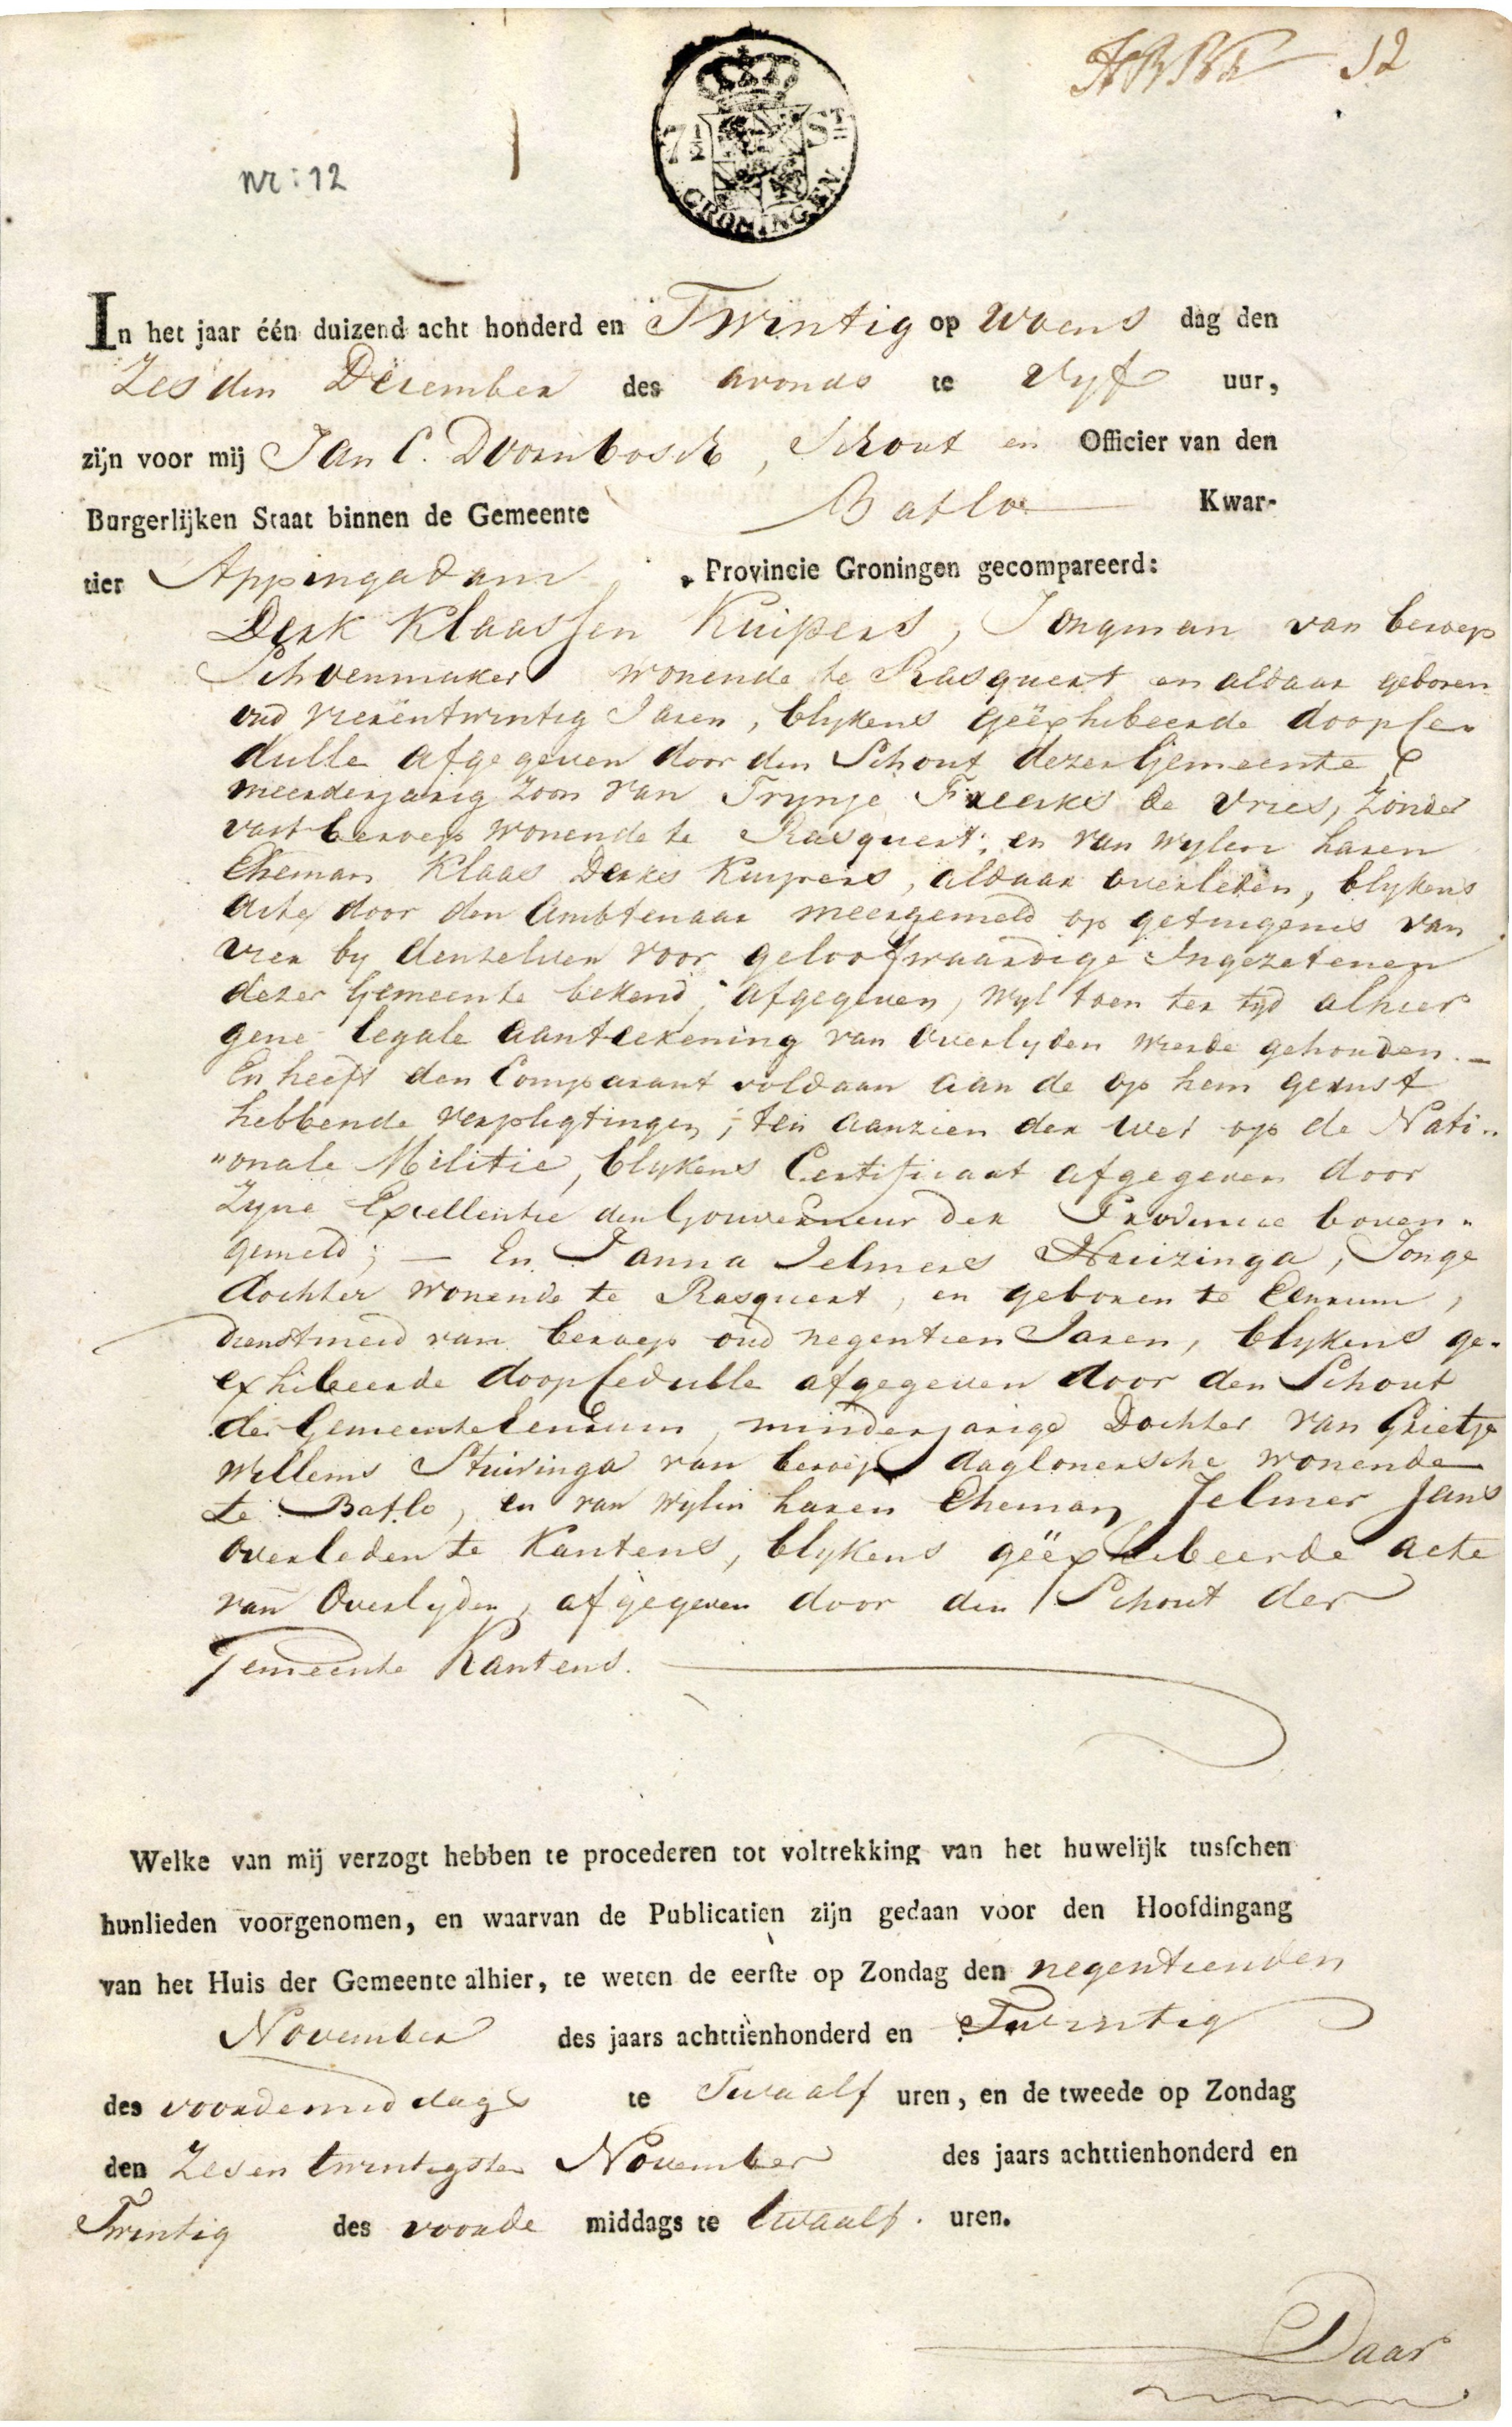 12
nr: 12
7½ St
GRONINGEN
In het jaar één duizend acht honderd en Twintig op Woens dag den
Zesden December des avonds te Vyf uur,
zijn voor mij Jan C. Doornbosch, Schout en Officier van den
Burgerlijken Staat binnen de Gemeente Baflo Kwar-
tier Appingadam, Provincie Groningen gecompareerd:
Derk Klaassen Kuipers, Jongman van beroep
Schoenmaker wonende te Rasquert en aldaar geboren
oud vierentwintig Jaren, blykens geëxhibeerde doopce-
dulle afgegeven door den Schout dezer Gemeente,
meerderjarig Zoon van Trynje Freerks de Vries, Zonder
vast beroep wonende te Rasquert; en van wylen haren
Eheman Klaas Derks Kuypers, aldaar overleden, blykens
acte door den Ambtenaar meergemeld op getuigenis van
vier by denzelven voor geloofwaardige Ingezetenen
dezer Gemeente bekend, afgegeven, wyl toen ter tyd alhier
gene legale aanteekening van overlyden wierde gehouden. —
En heeft den Comparant voldaan aan de op hem gerust
hebbende verpligtingen, ten aanzien der wet op de Nati-
"onale Militie, blykens Certificaat afgegeven door
Zyne Excellentie den Gouverneur der Provincie boven-
gemeld; — En Janna Jelmers Huizinga, Jonge
dochter wonende te Rasquert, en geboren te Eenrum,
dienstmeid van beroep oud negentien Jaren, blykens ge-
exhibeerde doopcedulle afgegeven door den Schout
der Gemeente Eenrum, minderjarige Dochter van Grietje
Willems Stuivinga van beroep daglonersche wonende
te Baflo, en van wylen haren Eheman Jelmer Jans
overleden te Kantens, blykens geëxhibeerde acte
van Overlyden, afgegeven door den Schout der
Gemeente Kantens.
Welke van mij verzogt hebben te procederen tot voltrekking van het huwelijk tusschen
hunlieden voorgenomen, en waarvan de Publicatien zijn gedaan voor den Hoofdingang
van het Huis der Gemeente alhier, te weten de eerste op Zondag den negentienden
November des jaars achttienhonderd en Twintig
des voordemiddags te Twaalf uren, en de tweede op Zondag
den Zesentwintigsten November des jaars achttienhonderd en
Twintig des voorde middags te twaalf uren.
Daar